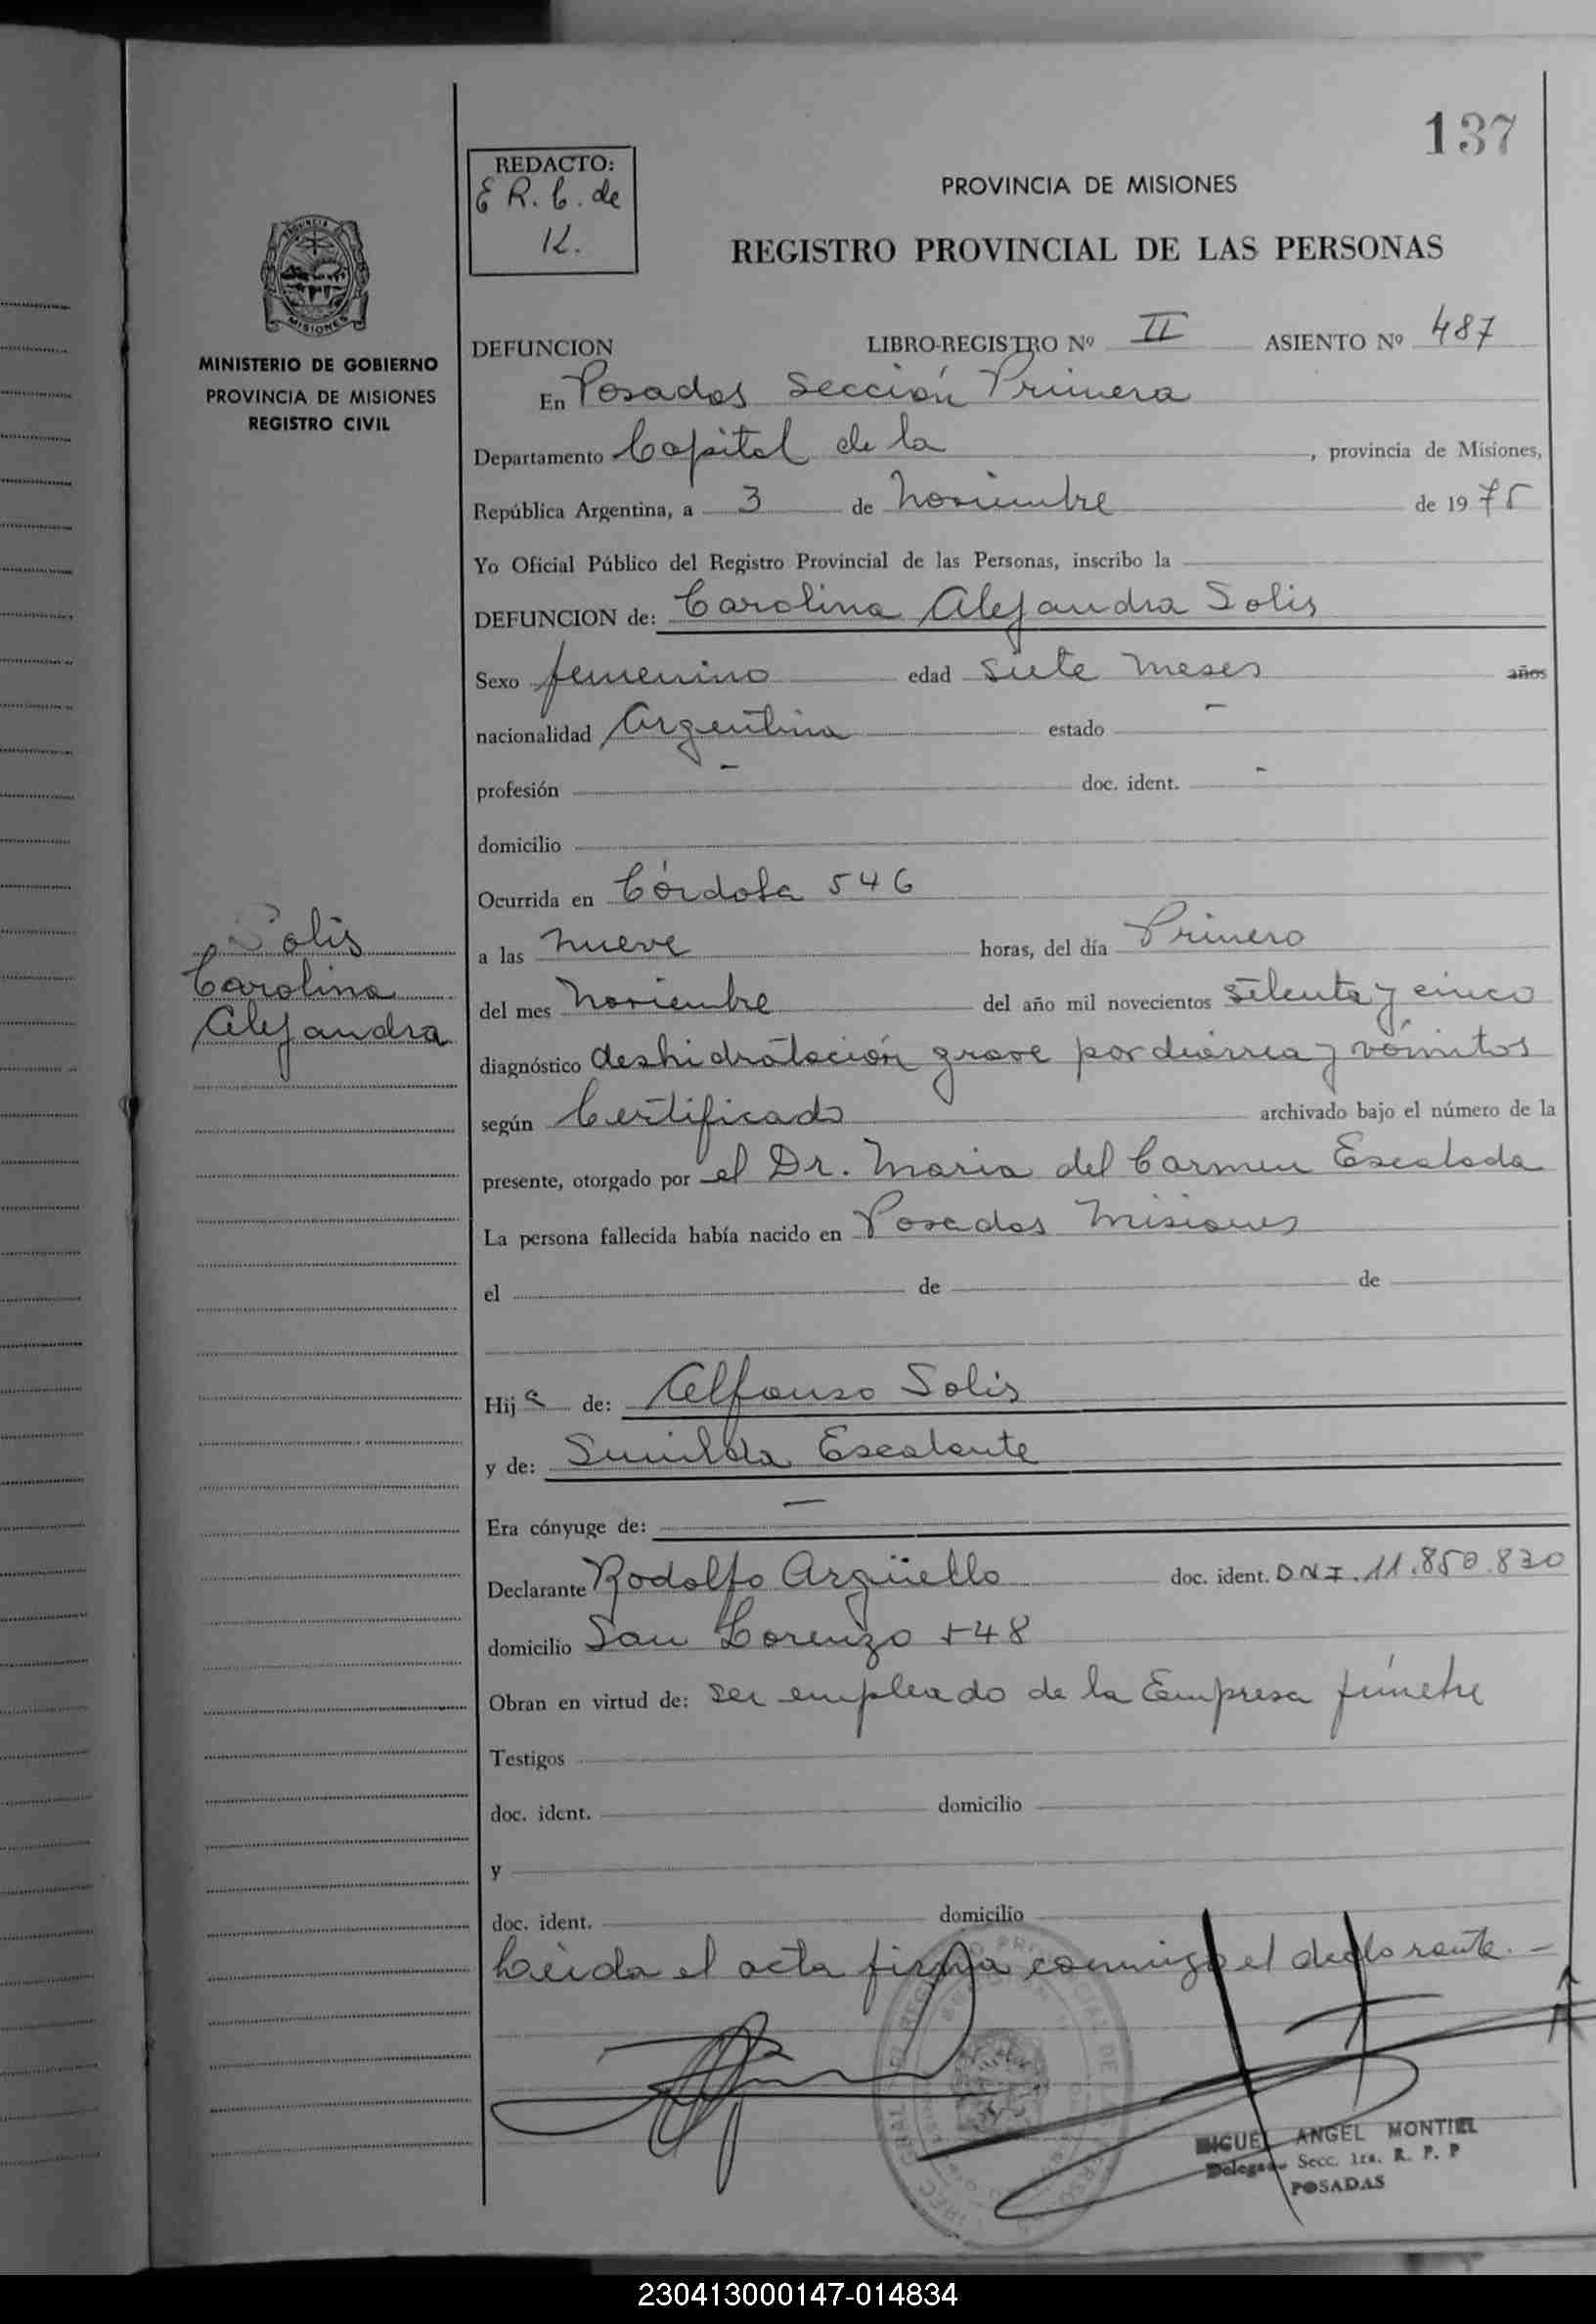 137
REDACTO:
E R. C. de
K.
PROVINCIA DE MISIONES
REGISTRO PROVINCIAL DE LAS PERSONAS
MISIONES
MINISTERIO DE GOBIERNO
PROVINCIA DE MISIONES
REGISTRO CIVIL
DEFUNCION LIBRO-REGISTRO Nº II ASIENTO Nº 487
En Posadas Sección Primera
Departamento Capital de la , provincia de Misiones,
República Argentina, a 3 de Noviembre de 1975
Yo Oficial Público del Registro Provincial de las Personas, inscribo la
DEFUNCION de: Carolina Alejandra Solis
Sexo femenino edad siete meses años
nacionalidad Argentina estado -
profesión - doc. ident. -
domicilio
Ocurrida en Córdoba 546
Solis
Carolina
Alejandra
a las nueve horas, del día Primero
del mes Noviembre del año mil novecientos setenta y cinco
diagnóstico deshidratación grave por diarrea y vómitos
según Certificado archivado bajo el número de la
presente, otorgado por el Dr. Maria del Carmen Escalada
La persona fallecida había nacido en Posadas Misiones
el de de
Hija de: Alfonso Solis
y de: Sunilda Escalante
Era cónyuge de: -
Declarante Rodolfo Argüello doc. ident. DNI. 11.850.830
domicilio San Lorenzo 548
Obran en virtud de: ser empleado de la Empresa fúnebre
Testigos
doc. ident. domicilio
y
doc. ident. domicilio
Leida el acta firma conmigo el declarante. -
MIGUEL ANGEL MONTIEL
Delegado Secc. 1ra. R. P. P
POSADAS
230413000147-014834